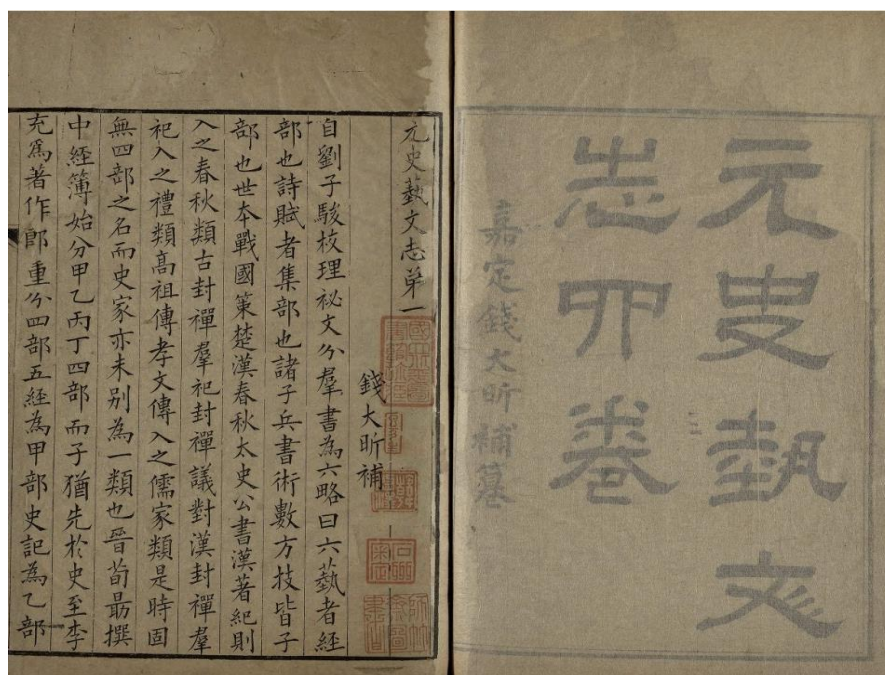 元史埶文
志四卷
嘉定錢大昕補纂
元史藝文志第一
錢大昕補
自劉子駿校理祕文分羣書為六略曰六藝者經
部也詩賦者集部也諸子兵書術數方技皆子
部也世本戰國策楚漢春秋太史公書漢著紀則
入之春秋類古封禪羣祀封禪議對漢封禪羣
祀入之禮類高祖傳孝文傳入之儒家類是時固
無四部之名而史家亦未别為一類也晉荀勗撰
中經簿始分甲乙丙丁四部而子猶先於史至李
充爲著作郎重分四部五經為甲部史記為乙部